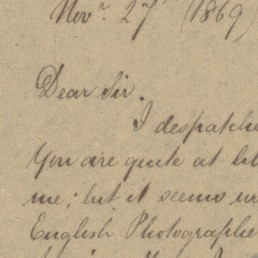 Novr. 27 (1869)
Dear Sir.
I despatche
You are quite at lib
me; but it seems un
English Photographe